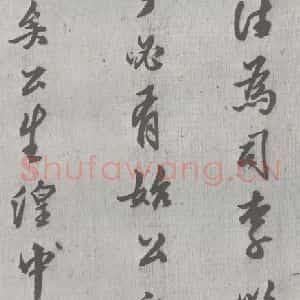 為司李
必有始公
矣公生湟中
Shufawang.CN